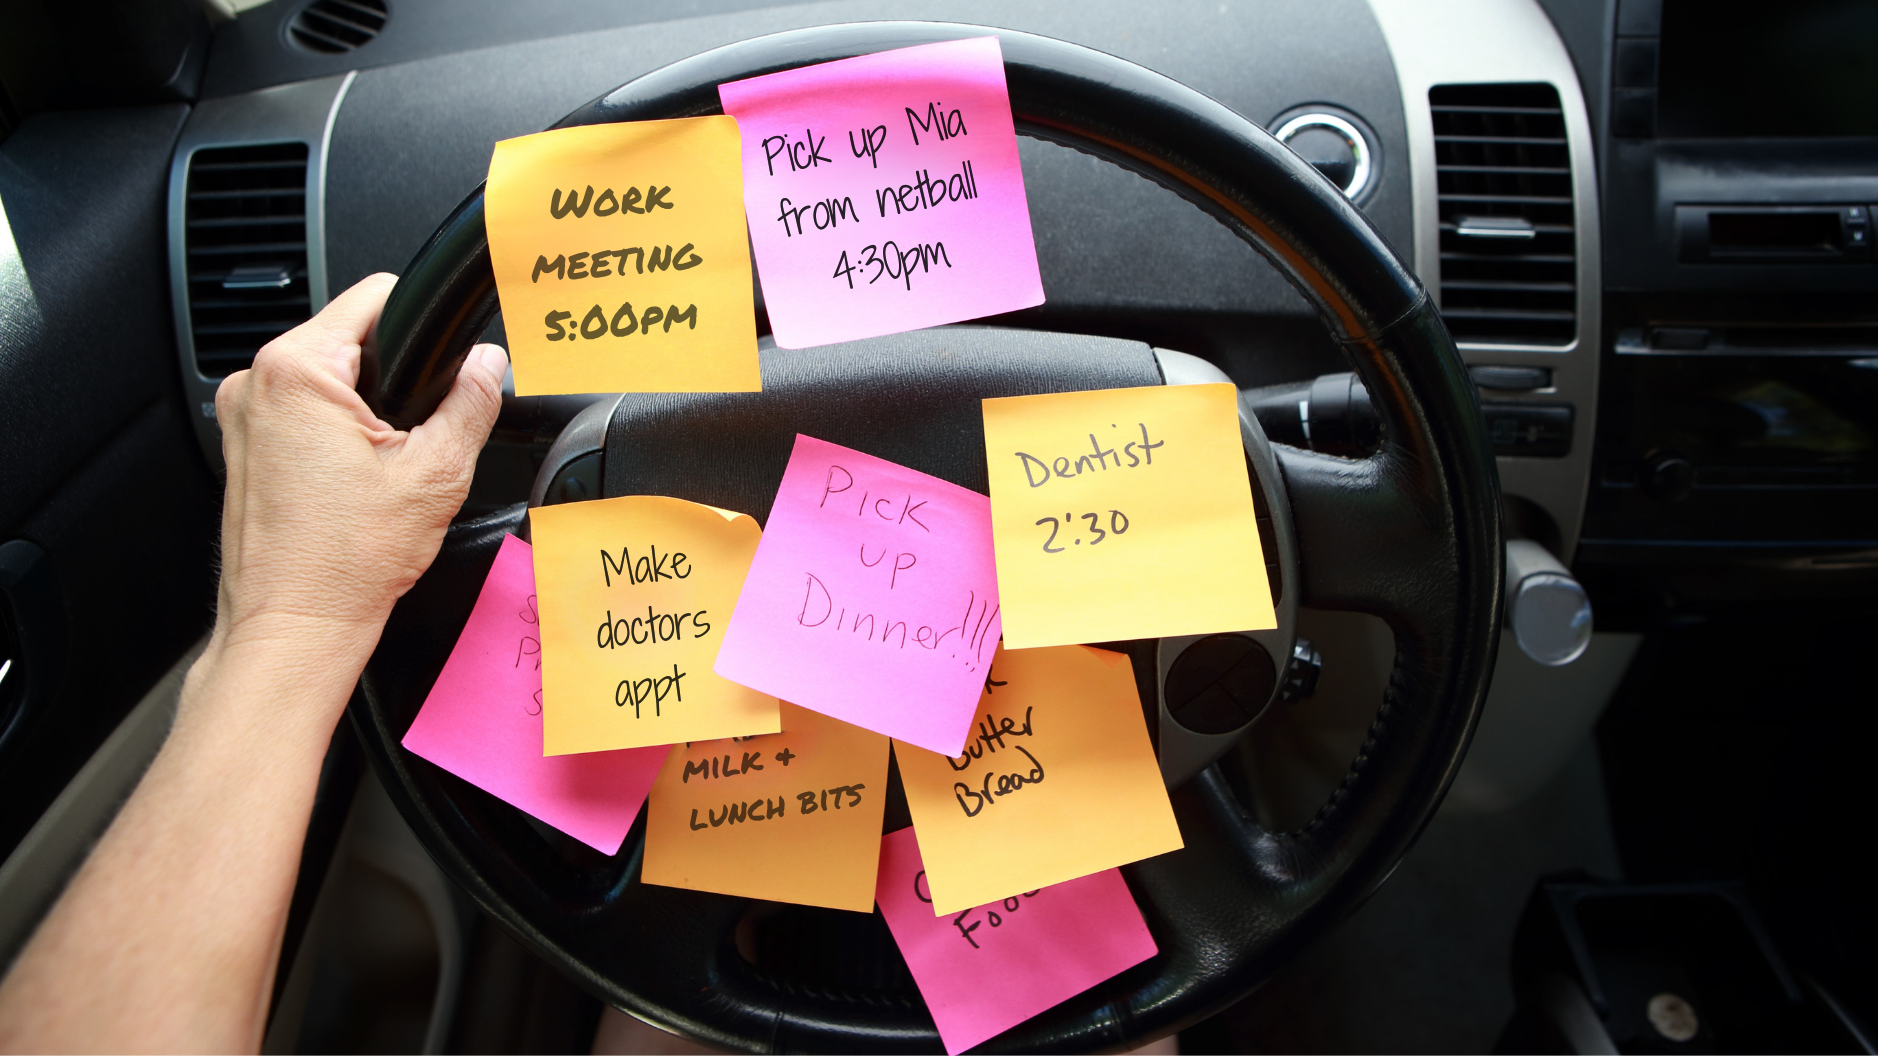 Pick up Mia
from netball
4:30pm
WORK
MEETING
5:00PM
Dentist
2:30
PICK
UP
Dinner!!!
Make
doctors
appt
MILK +
LUNCH BITS
Butter
Bread
Food